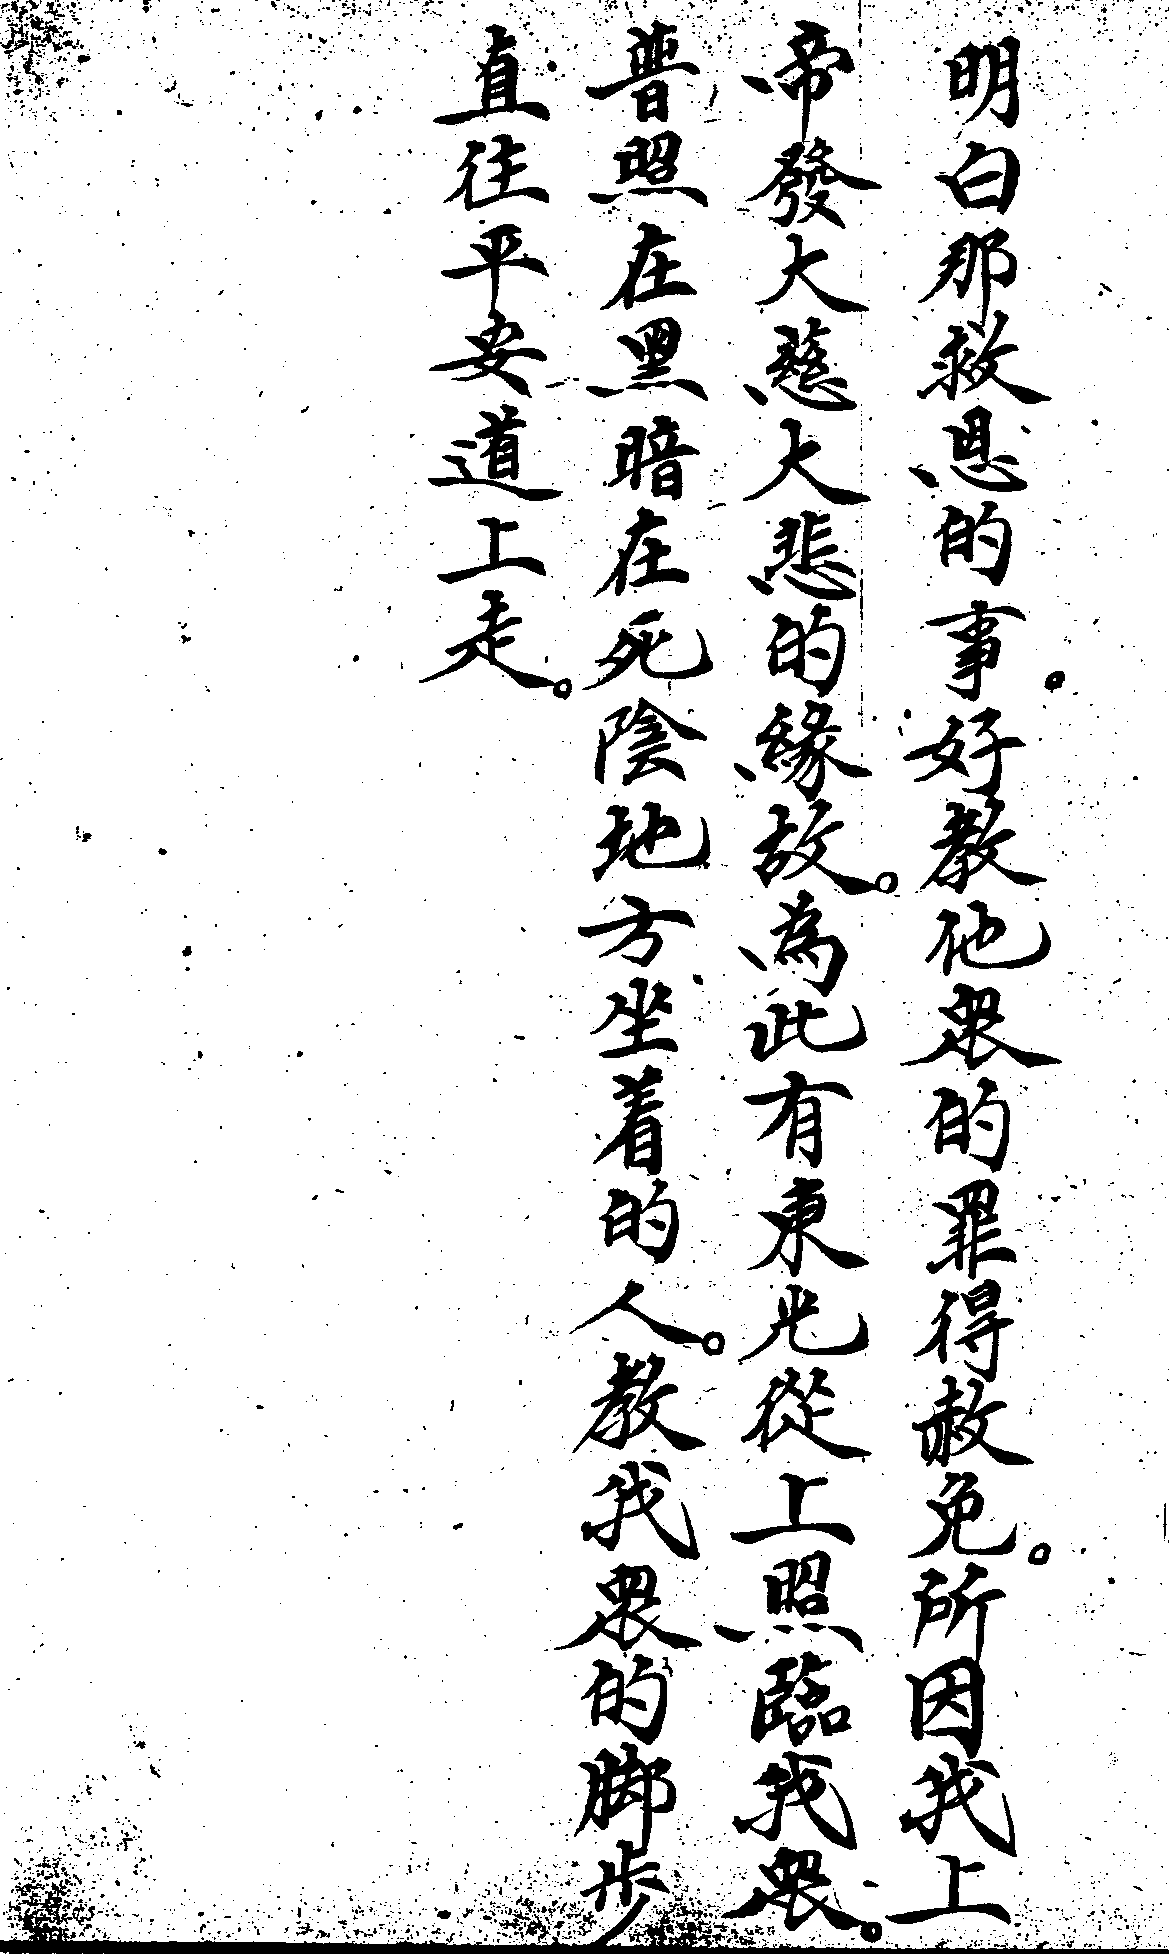 明白那救恩的事。好教他眾的罪得赦免。所因我上
帝發大慈大悲的緣故。為此有東光從上照臨我眾。
普照在黑暗在死陰地方坐着的人。教我眾的脚步
直往平安道上走。